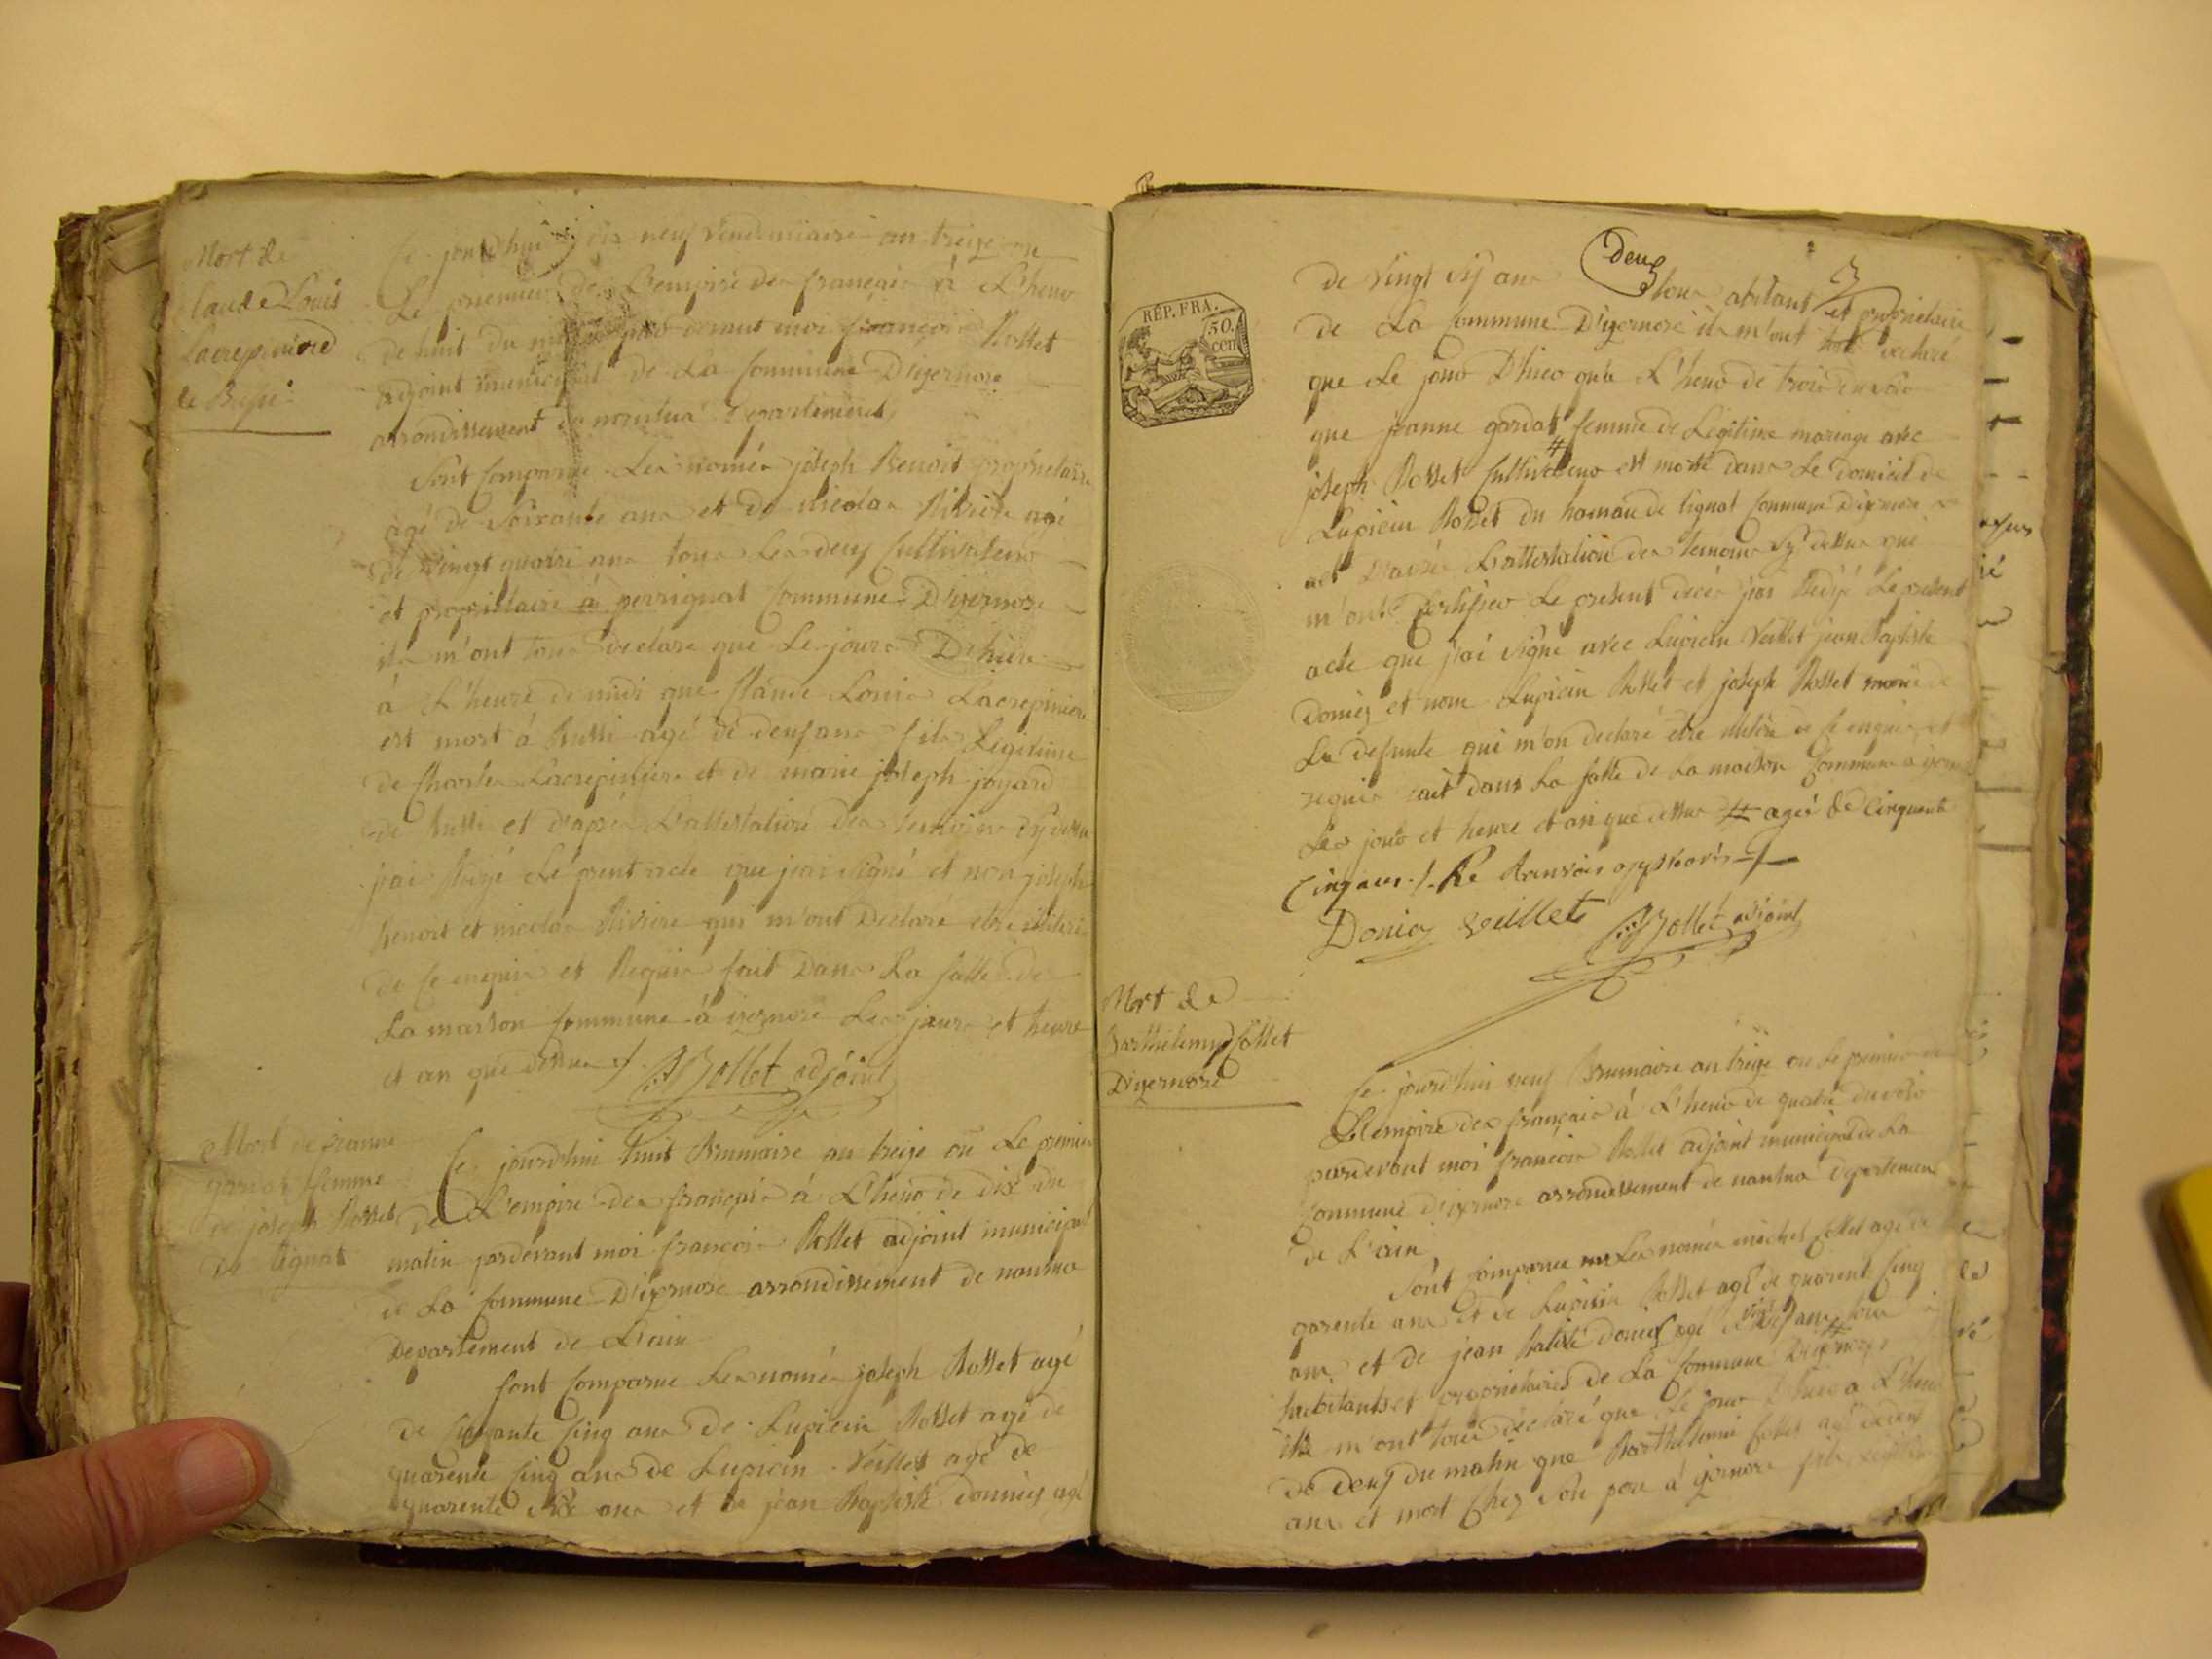 Mort de
Claude Louis
Lacrepiniere
de Bussi
Ce jourdhui dix neuf vendemiaire an treize ou
Le premier de L'empire des français à L'heur
de huit du pardevant moi françois Rollet
adjoint municipal de La Commune D'izernore
arrondissement de nantua Departement
Sont Comparue Les només joseph Benoit propriétaire
agé de soixante ans et de nicolas Riviere agé
de vingt quatre ans tous Les deux Cultivateur
et propriétaire à perrignat Commune D'izernore
ils m'ont tous declare que Le jour D'hier
à L'heure de midi que Claude Louis Lacrepiniere
est mort à Bussi agé de deux ans fils Légitime
de Charles Lacrepiniere et de marie joseph joyard
de Bussi et d'après L'attestation des temoins sy dessus
j'ai redigé Le present acte que j'ai signé et non joseph
Benoit et nicolas Riviere qui m'ont Declaré etre illiteré
de ce enquis et Requis fait Dans La salle de
La maison Commune à izernore Les jours et heure
et an que dessus ./. Rollet adjoint
Mort de jeanne
gardat femme
de joseph Rosset
De tignat
Ce jourdhui huit Brumaire an treize ou Le premier
de L'empire des français à L'heur de dix du
matin pardevant moi françois Rollet adjoint municipal
de La Commune D'izernore arrondissement de nantua
Departement de L'ain
sont Comparue Les només joseph Rosset agé
de cinquante cinq ans de Lupicin Rosset agé de
quarente cinq ans de Lupicin Veillet agé de
quarente six ans et de jean Baptiste Donniez agé
deux 3
RÉP. FRA.
50.
cen
de vingt six ans tous abitans et propriétaire
de La Commune D'izernore ils m'ont declaré
que Le jour D'hier qu'a L'heur de trois du soir
que jeanne gardat # femme de Légitime mariage avec
joseph Rosset Cultivateur est morte dans Le domicil de
Lupicin Rosset du hameau de tignat Commune D'izernore
et D'après L'attestation des temoins sy dessus qui
m'ont Certifier Le present decès j'ai Redigé Le present
acte que j'ai signé avec Lupicin Veillet jean Baptiste
Doniez et non Lupicin Rosset et joseph Rosset marie de
La defunte qui m'on declaré etre illitéré de ce enquis et
requis fait dans La salle de La maison Commune a izernore
Les jours et heure et an que dessus # ageé de Cinquante
Cinq ans ./. Le Renvois approuvés
Doniez veillet Rollet adjoint
Mort de
Barthelemy Collet
D'izernore
Ce jourdhui neuf Brumaire an treize ou Le premier de
L'empire des français à L'heur de quatre du soir
pardevant moi françois Rollet adjoint municipal de La
Commune D'izernore arrondissement de nantua departement
de L'ain
Sont Comparue Les només michel Collet agé de
qarente ans et de Lupicin Rosset agé de quarent Cinq
ans et de jean Batiste Doniez agé de vingt six ans tous
habitants et propriétaires de La Commune D'izernore #
ils m'ont tous déclaré que Le jour D'hier a L'heur
de deux du matin que Barthelemi Collet agé de
ans et mort Chez son père à izernore fils